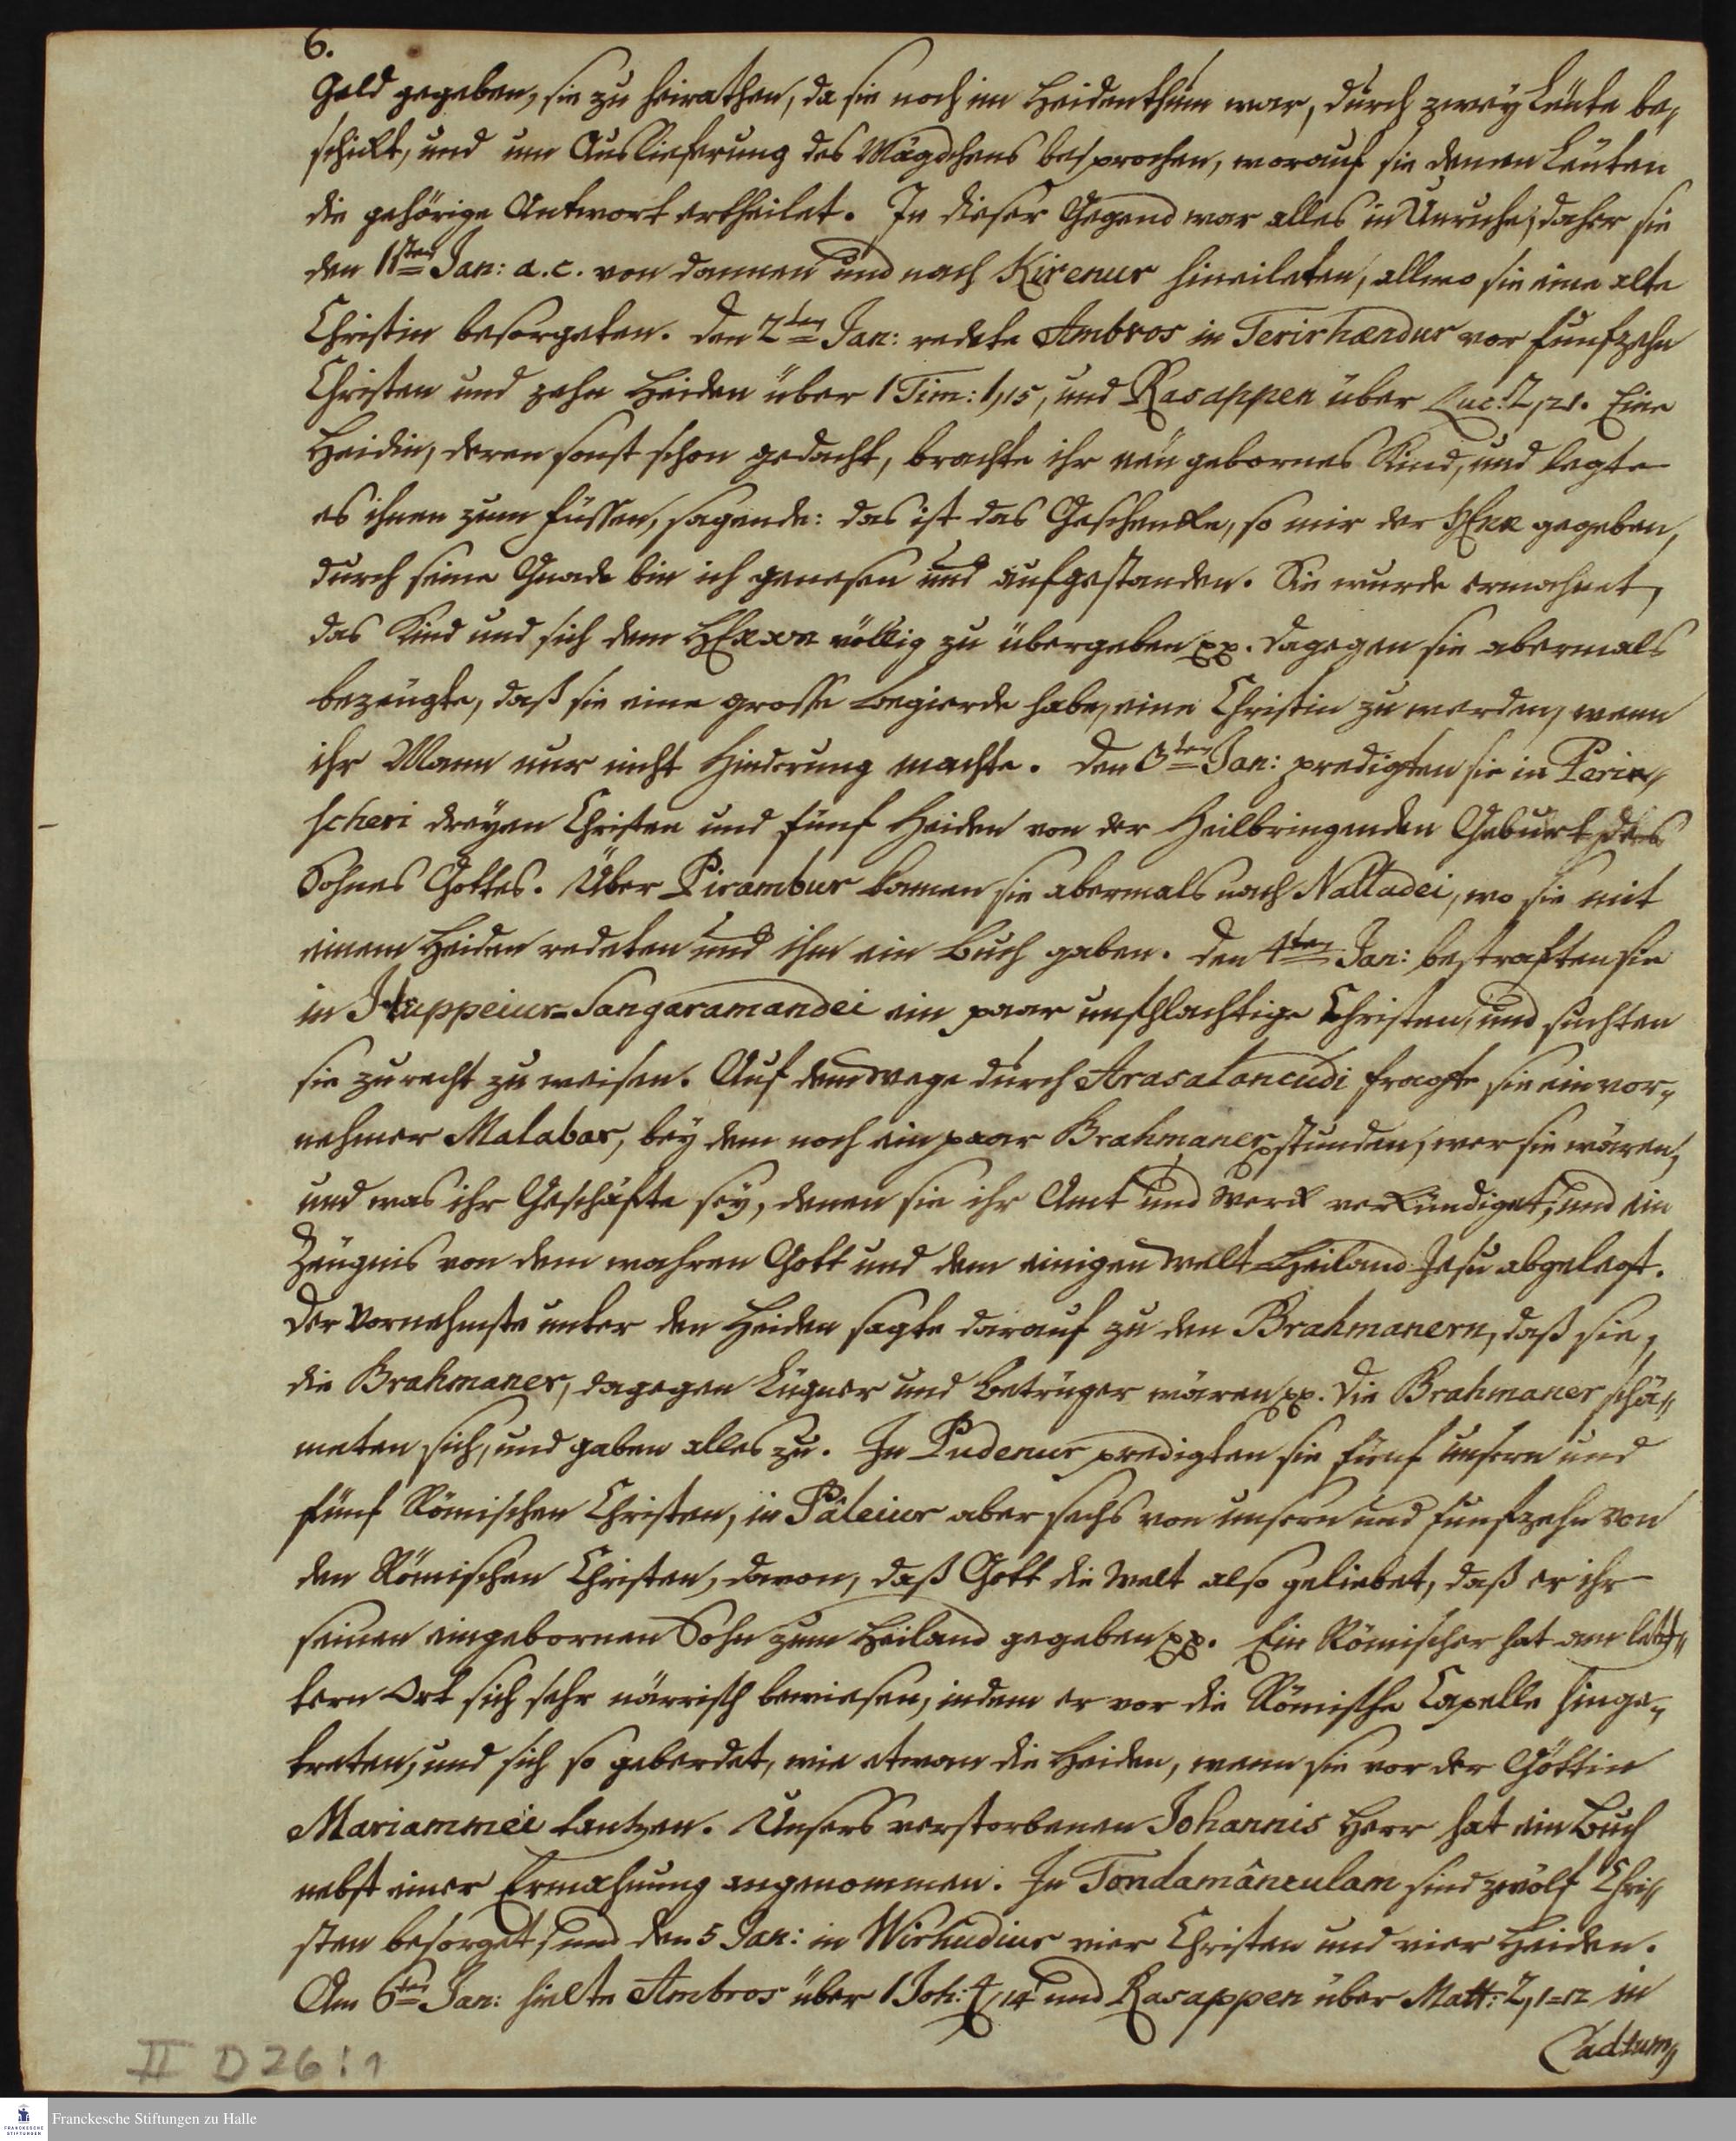 6.
Geld gegeben, sie zu heirathen, da sie noch im Heidenthum war, durch zwey Leüte be„
schickt, und um Auslieferung des Mägdchens besprochen, worauf sie denen Leüten
die gehörige Antwort ertheilet. In dieser Gegend war alles in Unruhe; daher sie
den 1sten Jan: a. c. von dannen und nach Kirenur hineileten, allwo sie eine alte
Christin besorgeten. Den 2ten Jan: redete Ambros in Terirhændur vor funfzehn
Christen und zehn Heiden über 1 Tim: 1,15, und Rasappen über Luc: 2,21. Eine
Heidin, deren sonst schon gedacht, brachte ihr neügebornes Kind, und legte
es ihnen zum Füssen, sagende: das ist das Geschencke, so mir der HErr gegeben,
durch seine Gnade bin ich genesen und aufgestanden. Sie wurde ermahnet,
das Kind und sich dem HErrn völlig zu übergeben pp. Dagegen sie abermals
bezeügte, daß sie eine grosse Begierde habe, eine Christin zu werden, wenn
ihr Mann nur nicht Hinderung machte. Den 3ten Jan: predigten sie in Perin„
scheri dreyen Christen und fünf Heiden von der Heilbringenden Geburt des
Sohnes Gottes. Über Pirambur kamen sie abermals nach Nattadei, wo sie mit
einem Heiden redeten und ihm ein Buch gaben. Den 4ten Jan: bestraften sie
in Iluppeiur-Sangaramandei ein paar unschlachtige Christen, und suchten
sie zurecht zu weisen. Auf dem Wege durch Arasatancudi fragte sie ein vor„
nehmer Malabar, bey dem noch ein paar Brahmaner stunden, wer sie wären,
und was ihr Geschäfte sey, denen sie ihr Amt und Werck verkündiget, und ein
Zeügnis von dem wahren Gott und dem einigen Welt-Heiland Jesu abgelegt.
Der Vornehmste unter den Heiden sagte darauf zu den Brahmanern, daß sie,
die Brahmaner, dagegen Lügner und Betrüger wären pp. Die Brahmaner schä„
meten sich, und gaben alles zu. In Pudenur predigten sie fünf unsern und
fünf Römischen Christen, in Pâleiur aber sechs von unsern und funfzehn von
den Römischen Christen, davon, daß Gott die Welt also geliebet, daß er ihr
seinen eingebornen Sohn zum Heiland gegeben pp. Ein Römischer hat am letz„
tern Ort sich sehr närrisch bewiesen, indem er vor die Römische Capelle hinge„
treten, und sich so geberdet, wie etwan die Heiden, wenn sie vor der Göttin
Mariammei tantzen. Unsers verstorbenen Johannis Herr hat ein Buch
nebst einer Ermahnung angenommen. In Tondamânculam sind zwölf Chri„
sten besorget, und den 5 Jan: in Wirhudiur vier Christen und vier Heiden.
Am 6ten Jan: hielte Ambros über 1 Joh: 4,14 und Rasappen über Matt: 2,1-12 in
Cadtum„
II D 26:1
Franckesche Stiftungen zu Halle
FRANCKESCHE
STIFTUNGEN